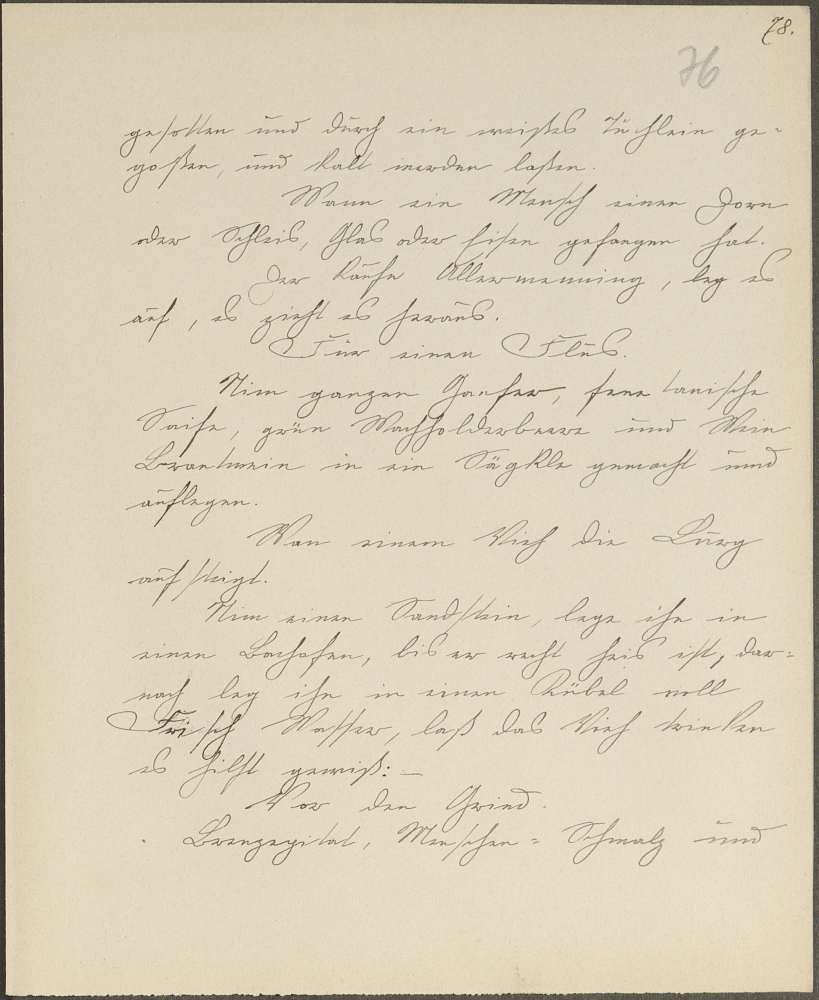 78.
76
gesotten und durch ein weißes Tüchlein ge-
goßen, und kalt werden laßen.
Wann ein Mensch einen Dorn
oder Schleis, Glas oder Eisen gefangen hat.
Der kaufe Allermenning, leg es
auf, es zieht es heraus.
Für einen Flus.
Nim ganzen Gaufer, fene tanische
Saife, grün Wachholderbeere und Wein
Brantwein in ein Sägkle gemacht und
auflegen.
Wan einem Vieh die Lung
aufsteigt.
Nim einen Sandstein, lege ihn in
einen Bachofen, bis er recht heis ist, dar-
nach leg ihn in einen Kübel voll
Frisch Wasser, laß das Vieh trinken
es hilft gewiß: —
Vor den Grind.
Menschen-Schmalz und